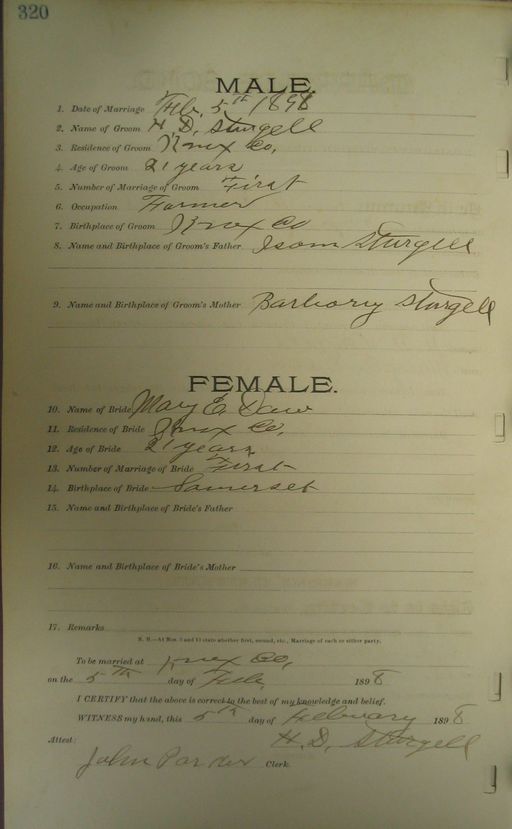 320
MALE.
1. Date of Marriage Feb. 5th 1898
2. Name of Groom H. D. Sturgell
3. Residence of Groom Knox Co,
4. Age of Groom 21 years
5. Number of Marriage of Groom First
6. Occupation Farmer
7. Birthplace of Groom Knox Co
8. Name and Birthplace of Groom's Father Isom Sturgell
9. Name and Birthplace of Groom's Mother Barbary Sturgell
FEMALE.
10. Name of Bride Mary E.
11. Residence of Bride Knox Co,
12. Age of Bride 21 years
13. Number of Marriage of Bride First
14. Birthplace of Bride Somerset
15. Name and Birthplace of Bride's Father
16. Name and Birthplace of Bride's Mother
17. Remarks
N. B.—At Nos. 5 and 13 state whether first, second, etc., Marriage of each or either party.
To be married at Knox Co,
on the 5th day of Feb, 1898
I CERTIFY that the above is correct to the best of my knowledge and belief.
WITNESS my hand, this 5th day of February 1898
H. D. Sturgell
Attest:
John Clerk.